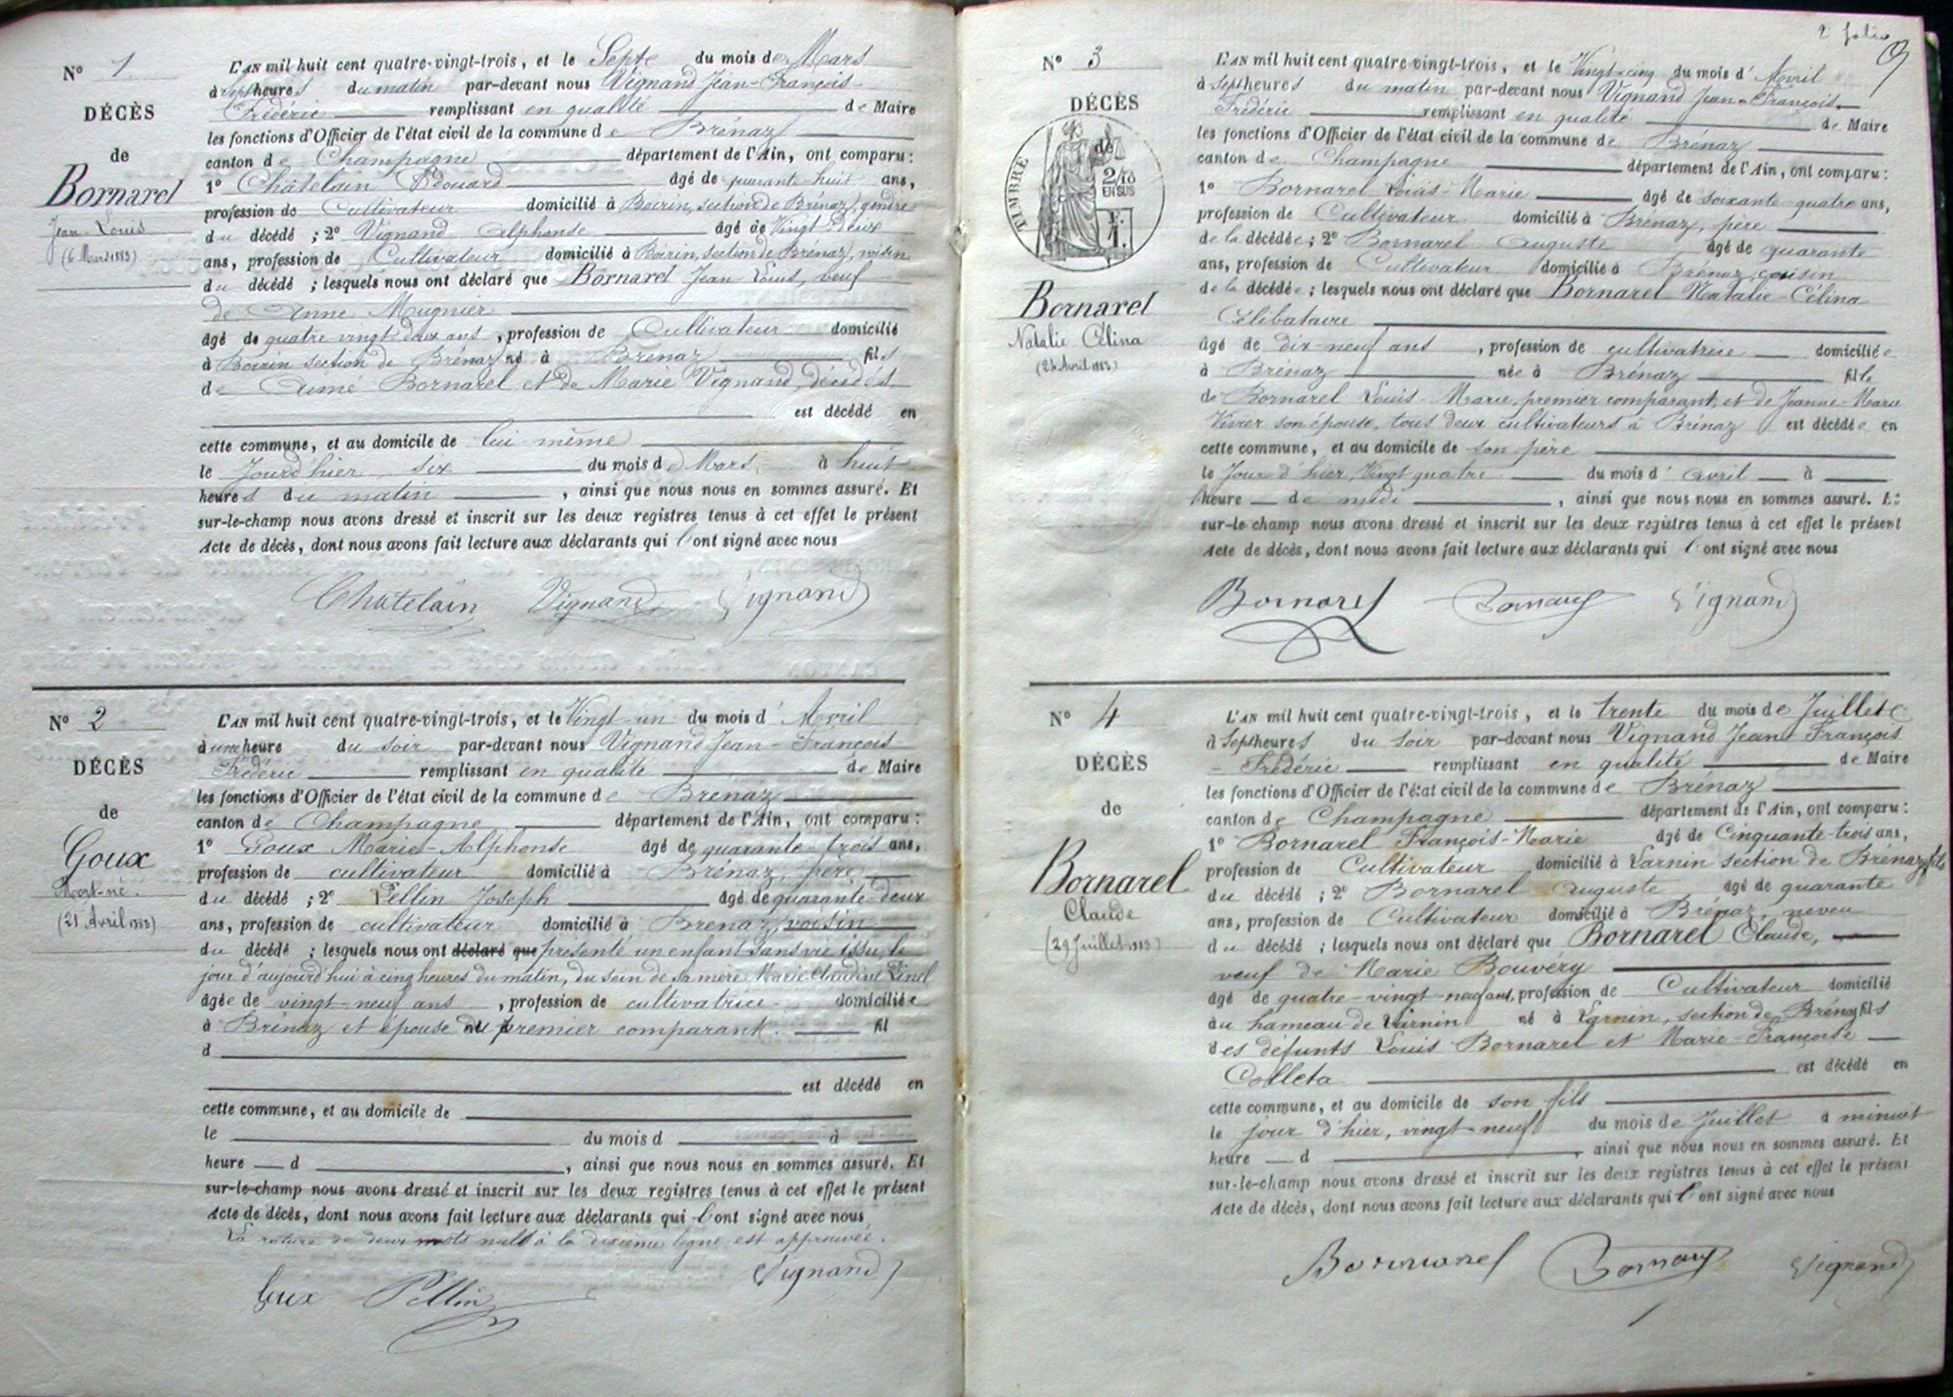 N° 1
DÉCÈS
de
Bornarel
Jean-Louis
(6 Mars 1883)
L'AN mil huit cent quatre-vingt-trois, et le Sept du mois de Mars
à sept heures du matin par-devant nous Vignand Jean-François-
Frédéric remplissant en qualité de Maire
les fonctions d'Officier de l'état civil de la commune de Brénaz
canton de Champagne département de l'Ain, ont comparu :
1° Châtelain Edouard âgé de quarante-huit ans,
profession de Cultivateur domicilié à Boirin, section de Brénaz, gendre
du décédé ; 2° Vignand Alphonse âgé de Vingt Deux
ans, profession de Cultivateur domicilié à Boirin, section de Brénaz, voisin
du décédé ; lesquels nous ont déclaré que Bornarel Jean Louis, veuf
de Anne Mugnier
âgé de quatre vingt deux ans, profession de Cultivateur domicilié
à Boirin section de Brénaz né à Brénaz fils
de Aimé Bornarel et de Marie Vignand, décédés
est décédé en
cette commune, et au domicile de lui-même
le Jour d'hier six du mois de Mars, à huit
heures du matin, ainsi que nous nous en sommes assuré. Et
sur-le-champ nous avons dressé et inscrit sur les deux registres tenus à cet effet le présent
Acte de décès, dont nous avons fait lecture aux déclarants qui l'ont signé avec nous
Chatelain Vignand Vignand
N° 2
DÉCÈS
de
Goux
Mort-né.
(21 Avril 1883)
L'AN mil huit cent quatre-vingt-trois, et le Vingt-un du mois d'Avril
à une heure du soir par-devant nous Vignand Jean-François
Frédéric remplissant en qualité de Maire
les fonctions d'Officier de l'état civil de la commune de Brénaz
canton de Champagne département de l'Ain, ont comparu :
1° Goux Marie-Alphonse âgé de quarante-trois ans,
profession de cultivateur domicilié à Brénaz, père
du décédé ; 2° Pellin Joseph âgé de quarante deux
ans, profession de cultivateur domicilié à Brénaz, voisin
du décédé ; lesquels nous ont déclaré que présenté un enfant sans vie issu, le
jour d'aujourd'hui à cinq heures du matin, du sein de sa mère Marie Claudine Pinel
âgée de vingt-neuf ans, profession de cultivatrice domiciliée
à Brénaz et épouse du premier comparant. fil
d
est décédé en
cette commune, et au domicile de
le du mois d à
heure d, ainsi que nous nous en sommes assuré. Et
sur-le-champ nous avons dressé et inscrit sur les deux registres tenus à cet effet le présent
Acte de décès, dont nous avons fait lecture aux déclarants qui l'ont signé avec nous
La rature de deux mots nulle à la dixième ligne est approuvée.
Goux Pellin Vignand
2e folio
N° 3
DÉCÈS
de
TIMBRE
2/10
EN SUS
Bornarel
Natalie Célina
(24 Avril 1883)
L'AN mil huit cent quatre-vingt-trois, et le Vingt-cinq du mois d'Avril
à sept heures du matin par-devant nous Vignand Jean-François-
Frédéric remplissant en qualité de Maire
les fonctions d'Officier de l'état civil de la commune de Brénaz
canton de Champagne département de l'Ain, ont comparu :
1° Bornarel Louis-Marie âgé de soixante-quatre ans,
profession de Cultivateur domicilié à Brénaz, père
de la décédée ; 2° Bornarel Auguste âgé de quarante
ans, profession de Cultivateur domicilié à Brénaz, cousin
de la décédée ; lesquels nous ont déclaré que Bornarel Natalie-Célina
Célibataire
âgé de dix-neuf ans, profession de cultivatrice domiciliée
à Brénaz née à Brénaz fille
de Bornarel Louis-Marie, premier comparant, et de Jeanne-Marie
Vivier son épouse, tous deux cultivateurs à Brénaz est décédée en
cette commune, et au domicile de son père
le Jour d'hier, Vingt quatre du mois d'avril à
heure de midi, ainsi que nous nous en sommes assuré. Et
sur-le-champ nous avons dressé et inscrit sur les deux registres tenus à cet effet le présent
Acte de décès, dont nous avons fait lecture aux déclarants qui l'ont signé avec nous
Bornarel Bornarel Vignand
N° 4
DÉCÈS
de
Bornarel
Claude
(29 Juillet 1883)
L'AN mil huit cent quatre-vingt-trois, et le trente du mois de Juillet
à sept heures du soir par-devant nous Vignand Jean-François
-Frédéric remplissant en qualité de Maire
les fonctions d'Officier de l'état civil de la commune de Brénaz
canton de Champagne département de l'Ain, ont comparu :
1° Bornarel François-Marie âgé de Cinquante-trois ans,
profession de Cultivateur domicilié à Larnin section de Brénaz, fils
du décédé ; 2° Bornarel Auguste âgé de quarante
ans, profession de Cultivateur domicilié à Brénaz, neveu
du décédé ; lesquels nous ont déclaré que Bornarel Claude,
veuf de Marie Bouvéry
âgé de quatre-vingt-neuf ans, profession de Cultivateur domicilié
au hameau de Larnin né à Larnin, section de Brénaz fils
des défunts Louis Bornarel et Marie-Françoise
Colleta est décédé en
cette commune, et au domicile de son fils
le jour d'hier, vingt-neuf du mois de Juillet à minuit
heure d, ainsi que nous nous en sommes assuré. Et
sur-le-champ nous avons dressé et inscrit sur les deux registres tenus à cet effet le présent
Acte de décès, dont nous avons fait lecture aux déclarants qui l'ont signé avec nous
Bornarel Bornarel Vignand